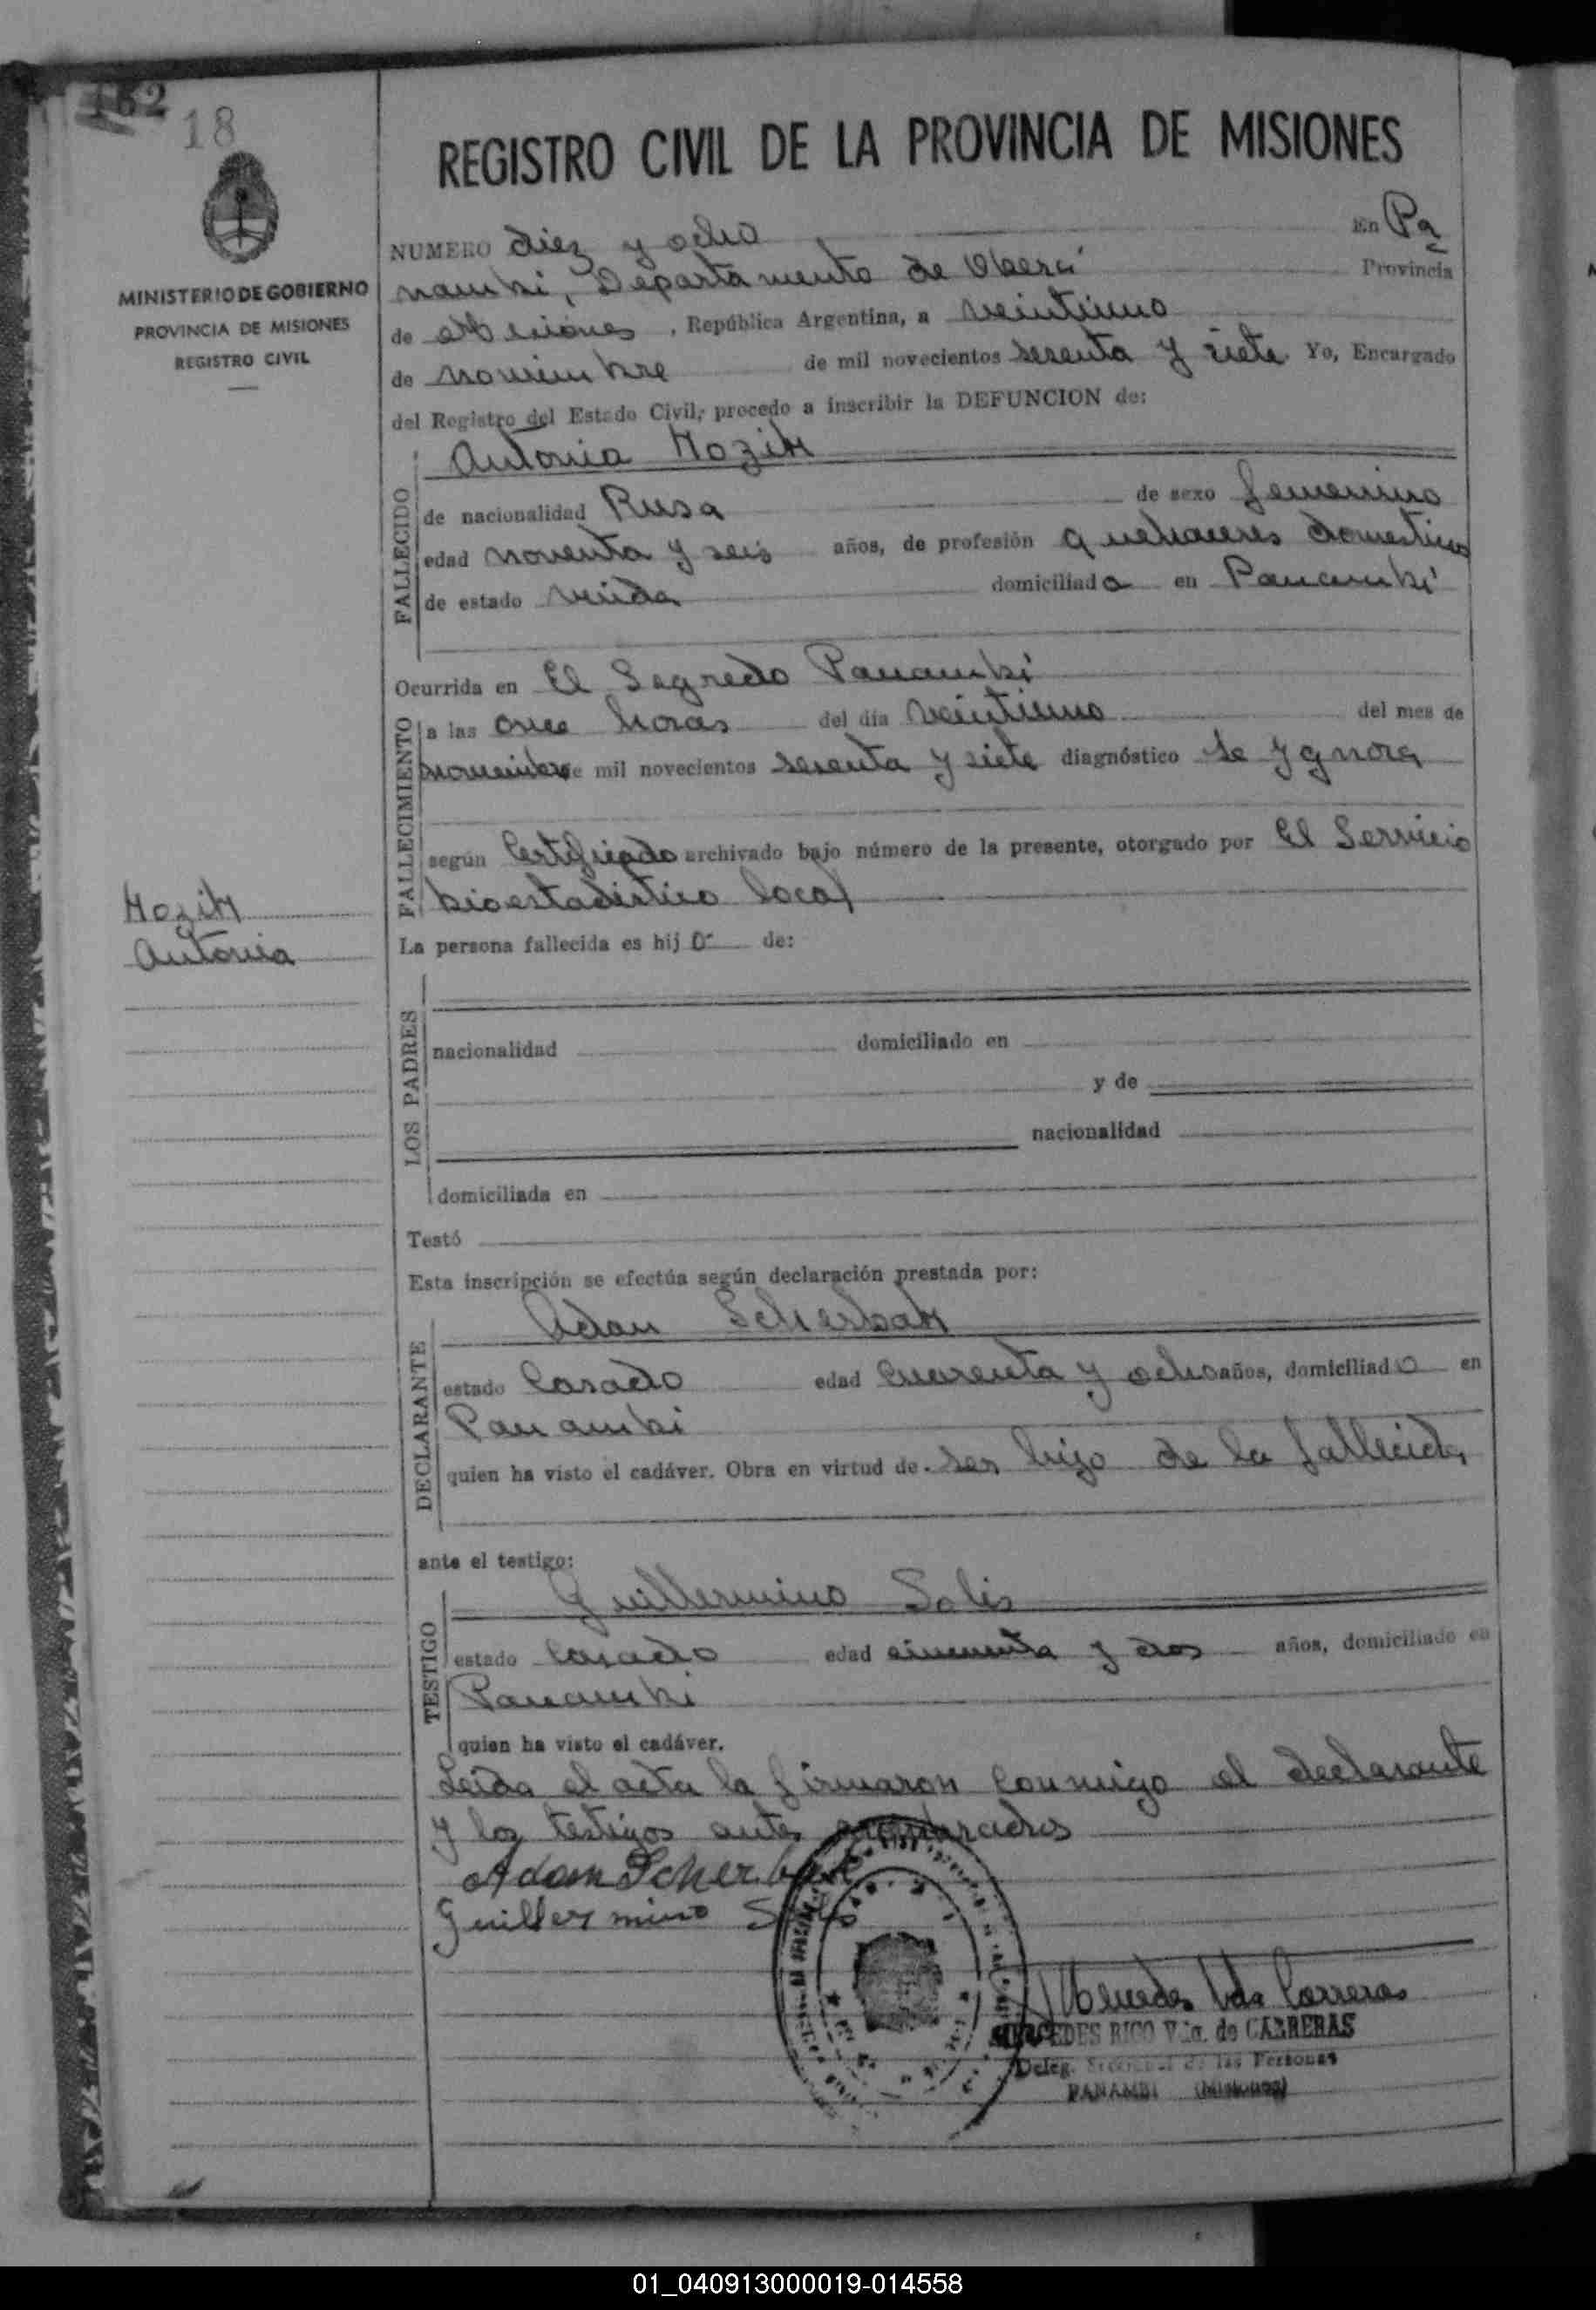 152
18
REGISTRO CIVIL DE LA PROVINCIA DE MISIONES
MINISTERIO DE GOBIERNO
PROVINCIA DE MISIONES
REGISTRO CIVIL
NUMERO diez y ocho En Pa
nambi, Departamento de Oberá Provincia
de Misiones, República Argentina, a veintiuno
de noviembre de mil novecientos sesenta y siete. Yo, Encargado
del Registro del Estado Civil, procedo a inscribir la DEFUNCION de:
Antonia Kozik
FALLECIDO
de nacionalidad Rusa de sexo femenino
edad noventa y seis años, de profesión quehaceres domesticos
de estado viuda domiciliada en Panambí
Ocurrida en El Segredo Panambí
FALLECIMIENTO
a las once horas del día veintiuno del mes de
noviembre de mil novecientos sesenta y siete diagnóstico se ygnora
según Certificado archivado bajo número de la presente, otorgado por El Servicio
bioestadistico local
Kozik
Antonia
La persona fallecida es hij de:
LOS PADRES
nacionalidad domiciliado en
y de
nacionalidad
domiciliada en
Testó
Esta inscripción se efectúa según declaración prestada por:
Adan Scherbak
DECLARANTE
estado Casado edad cuarenta y ocho años, domiciliado en
Panambi
quien ha visto el cadáver. Obra en virtud de ser hijo de la fallecida
ante el testigo:
Guillermino Solis
TESTIGO
estado Casado edad cincuenta y dos años, domiciliado en
Panambi
quien ha visto el cadáver.
Leida el acta la firmaron conmigo el declarante
y los testigos antes nombrados
Adam Scherbak
Guillermino Solis
Mercedes Vda Carreras
MERCEDES RICO Vda. de CARRERAS
Deleg. Seccional de las Personas
PANAMBI (Misiones)
01_040913000019-014558